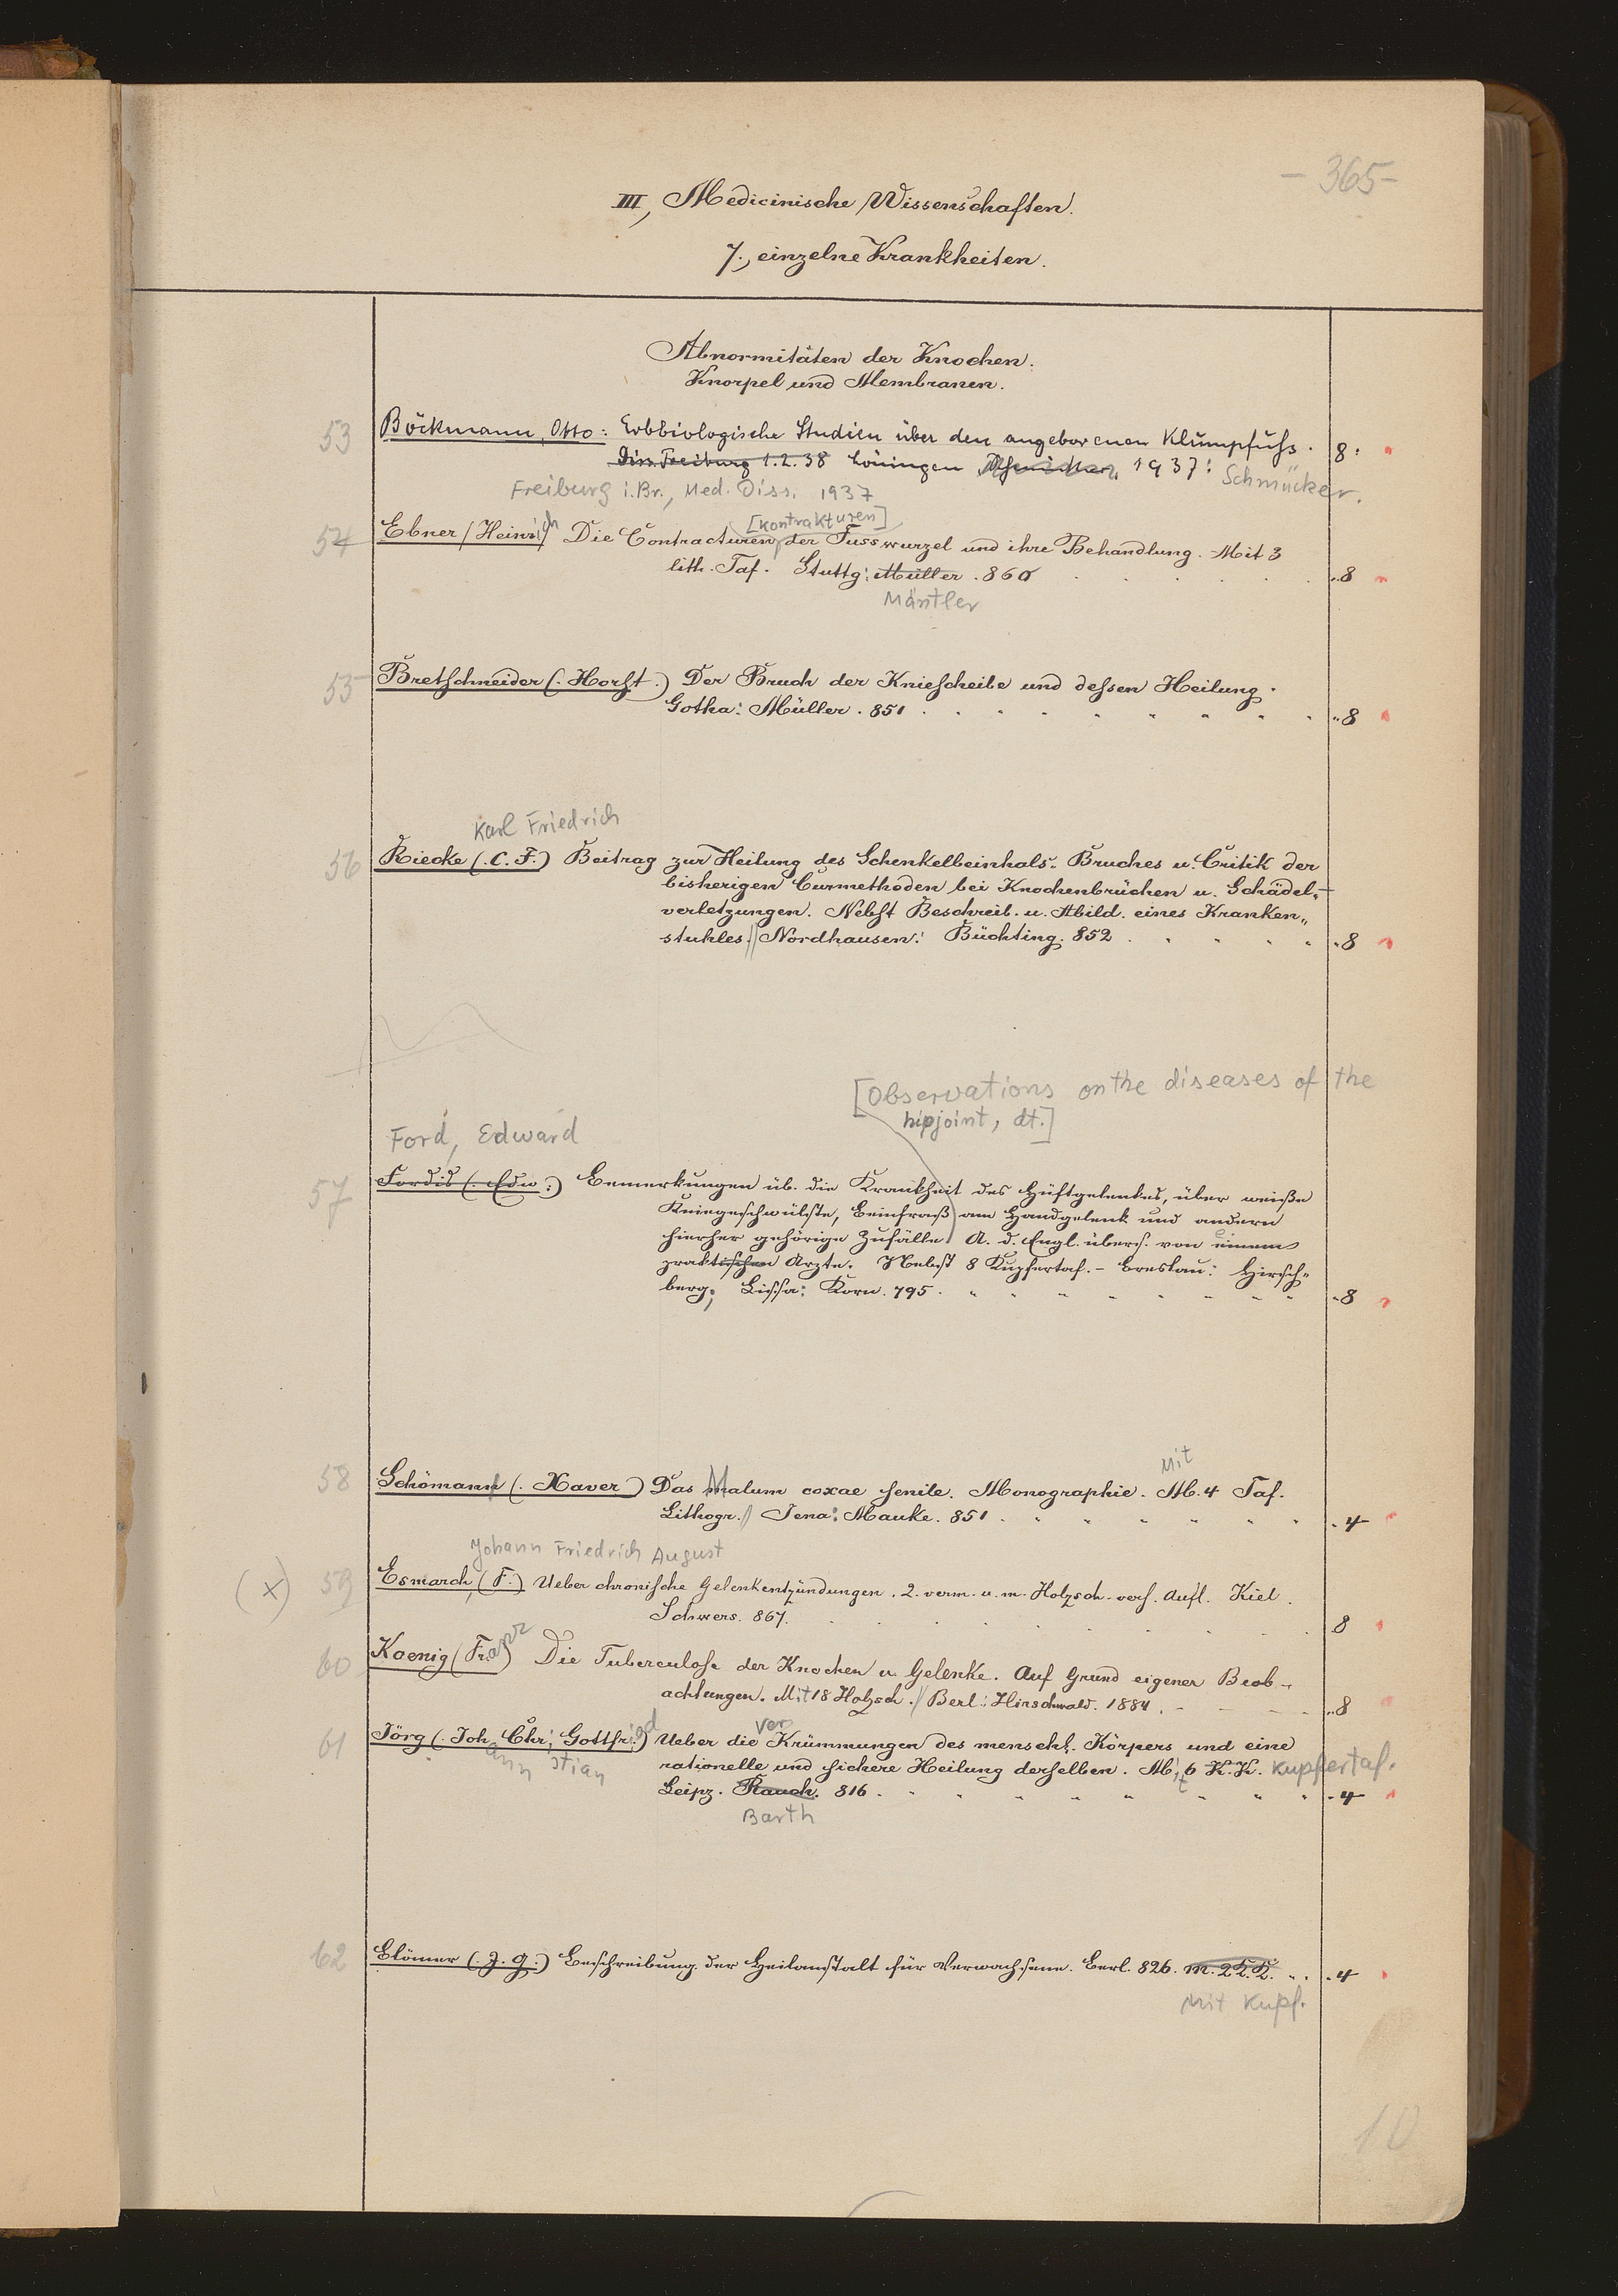 - 365 -
III, Medicinische Wissenschaften.
7., einzelne Krankheiten.
Abnormitäten der Knochen.
Knorpel und Membranen.
53 Böckmann, Otto: Erbbiologische Studien über den angeborenen Klumpfuſs. 8:
Diss. Freiburg 1.2.38 Löningen 1937: Schmücker.
Freiburg i. Br., Med. Diss. 1937
[Kontrakturen]
54 Ebner (Heinrich Die Contracturen der Fusswurzel und ihre Behandlung. Mit 3
lith. Taf. Stuttg: Müller. 860 „8
Mäntler
55 Bretschneider (. Horst.) Der Bruch der Kniescheibe und dessen Heilung.
Gotha: Müller. 851 „8
Karl Friedrich
56 Riecke (. C. F.) Beitrag zur Heilung des Schenkelbeinhals-Bruches u. Critik der
bisherigen Curmethoden bei Knochenbrüchen u. Schädel-
verletzungen. Nebst Beschreib. u. Abild. eines Kranken-
stuhles. // Nordhausen: Büchting. 852 „8
[Observations on the diseases of the
hipjoint, dt.]
Ford, Edward
57 Fordis (. Edw:) Bemerkungen üb. die Krankheit des Hüftgelenkes, über weiße
Kniegeschwülste, Beinfraß am Handgelenk und andern
hierher gehörige Zufälle. A. d. Engl. übers. von einem
praktischen Arzte. Nebst 8 Kupfertaf. - Breslau: Hirsch-
berg; Lissa: Korn. 795. „8
Mit
58 Schömann (. Xaver) Das Malum coxae senile. Monographie. M. 4 Taf.
Lithogr. // Jena: Mauke. 851 . 4
Johann Friedrich August
(x) 59 Esmarch, (F.) Ueber chronische Gelenkentzündungen. 2. verm. u. m. Holzsch. vers. Aufl. Kiel.
Schwers. 867. 8
60 Koenig (Franz) Die Tuberculose der Knochen u. Gelenke. Auf Grund eigener Beob-
achtungen. Mit 18 Holzsch. // Berl.: Hirschwald. 1884. „8
ver
61 Jörg (. Joh. Chr. Gottfried) Ueber die Krümmungen des menschl. Körpers und eine
ann stian rationelle und sichere Heilung derselben. Mit 6 K. K. Kupfertaf.
Leipz. Rauch. 816. „4
Barth
62 Blömer (. J. G.) Beschreibung der Heilanstalt für Verwachsene. Berl. 826. m. 2 K. K. . 4
Mit Kupf.
10